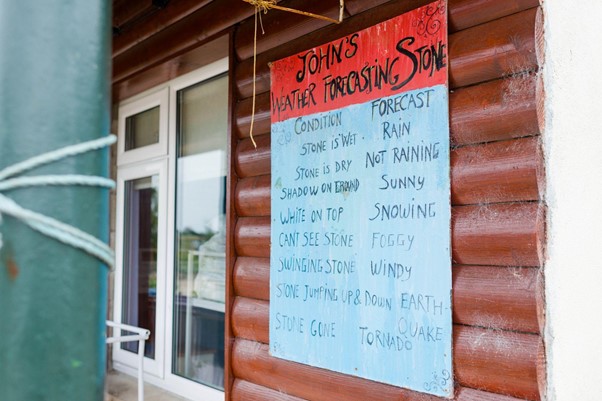 JOHN'S
WEATHER FORECASTING STONE
CONDITION FORECAST
STONE IS WET - RAIN
STONE IS DRY NOT RAINING
SHADOW ON GROUND SUNNY
WHITE ON TOP SNOWING
CAN'T SEE STONE FOGGY
SWINGING STONE WINDY
STONE JUMPING UP & DOWN EARTH-
QUAKE
STONE GONE TORNADO